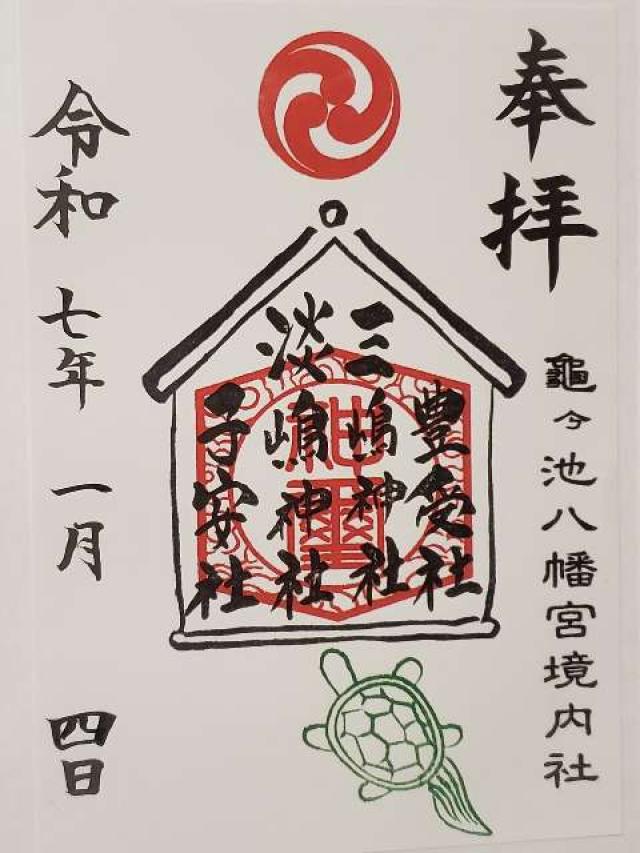 奉拝
龜ヶ池八幡宮境内社
豊受社
三嶋神社
淡嶋神社
子安社
令和七年一月四日